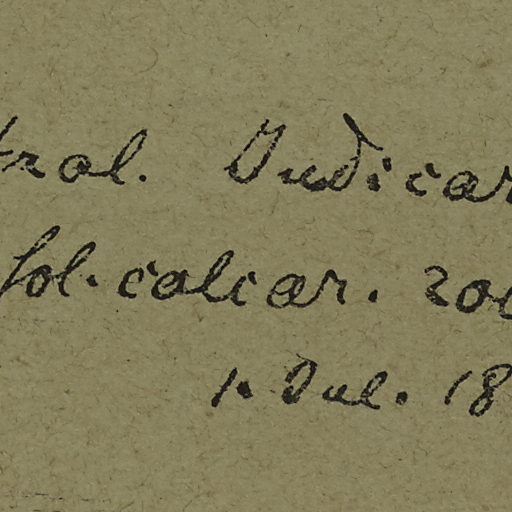 tral. Judicar
sol. calcar. 200
1. Jul. 18